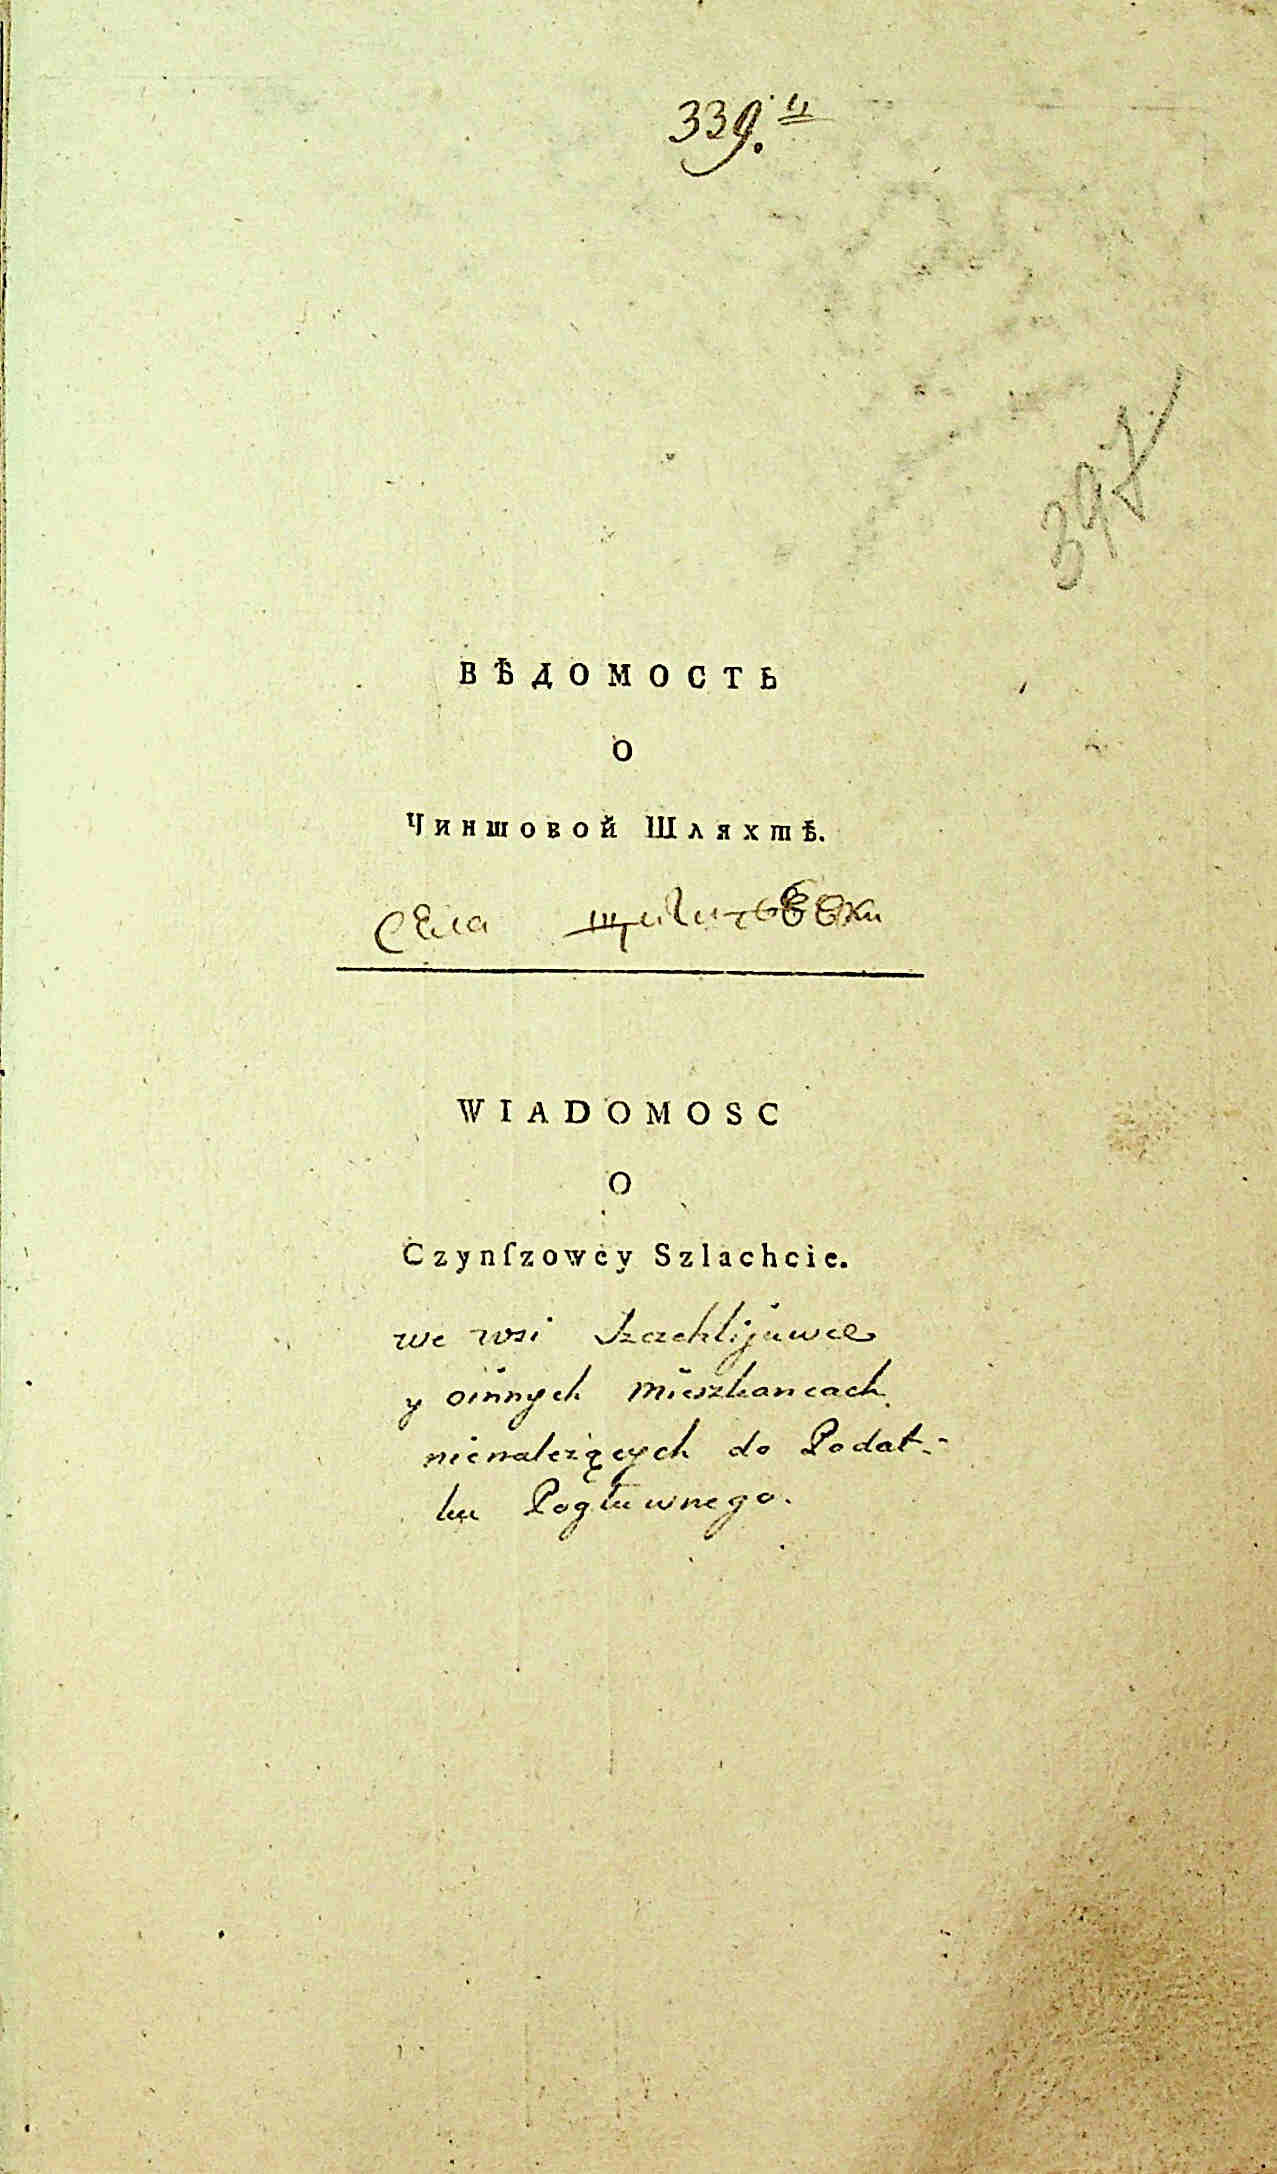 339.
397
ВѢДОМОСТЬ
О
Чиншовой Шляхтѣ.
Села
WIADOMOSC
O
Czynſzowey Szlachcie.
we wsi
y oinnych mieszkancach
nienależących do Podat-
ku Pogłuwnego.